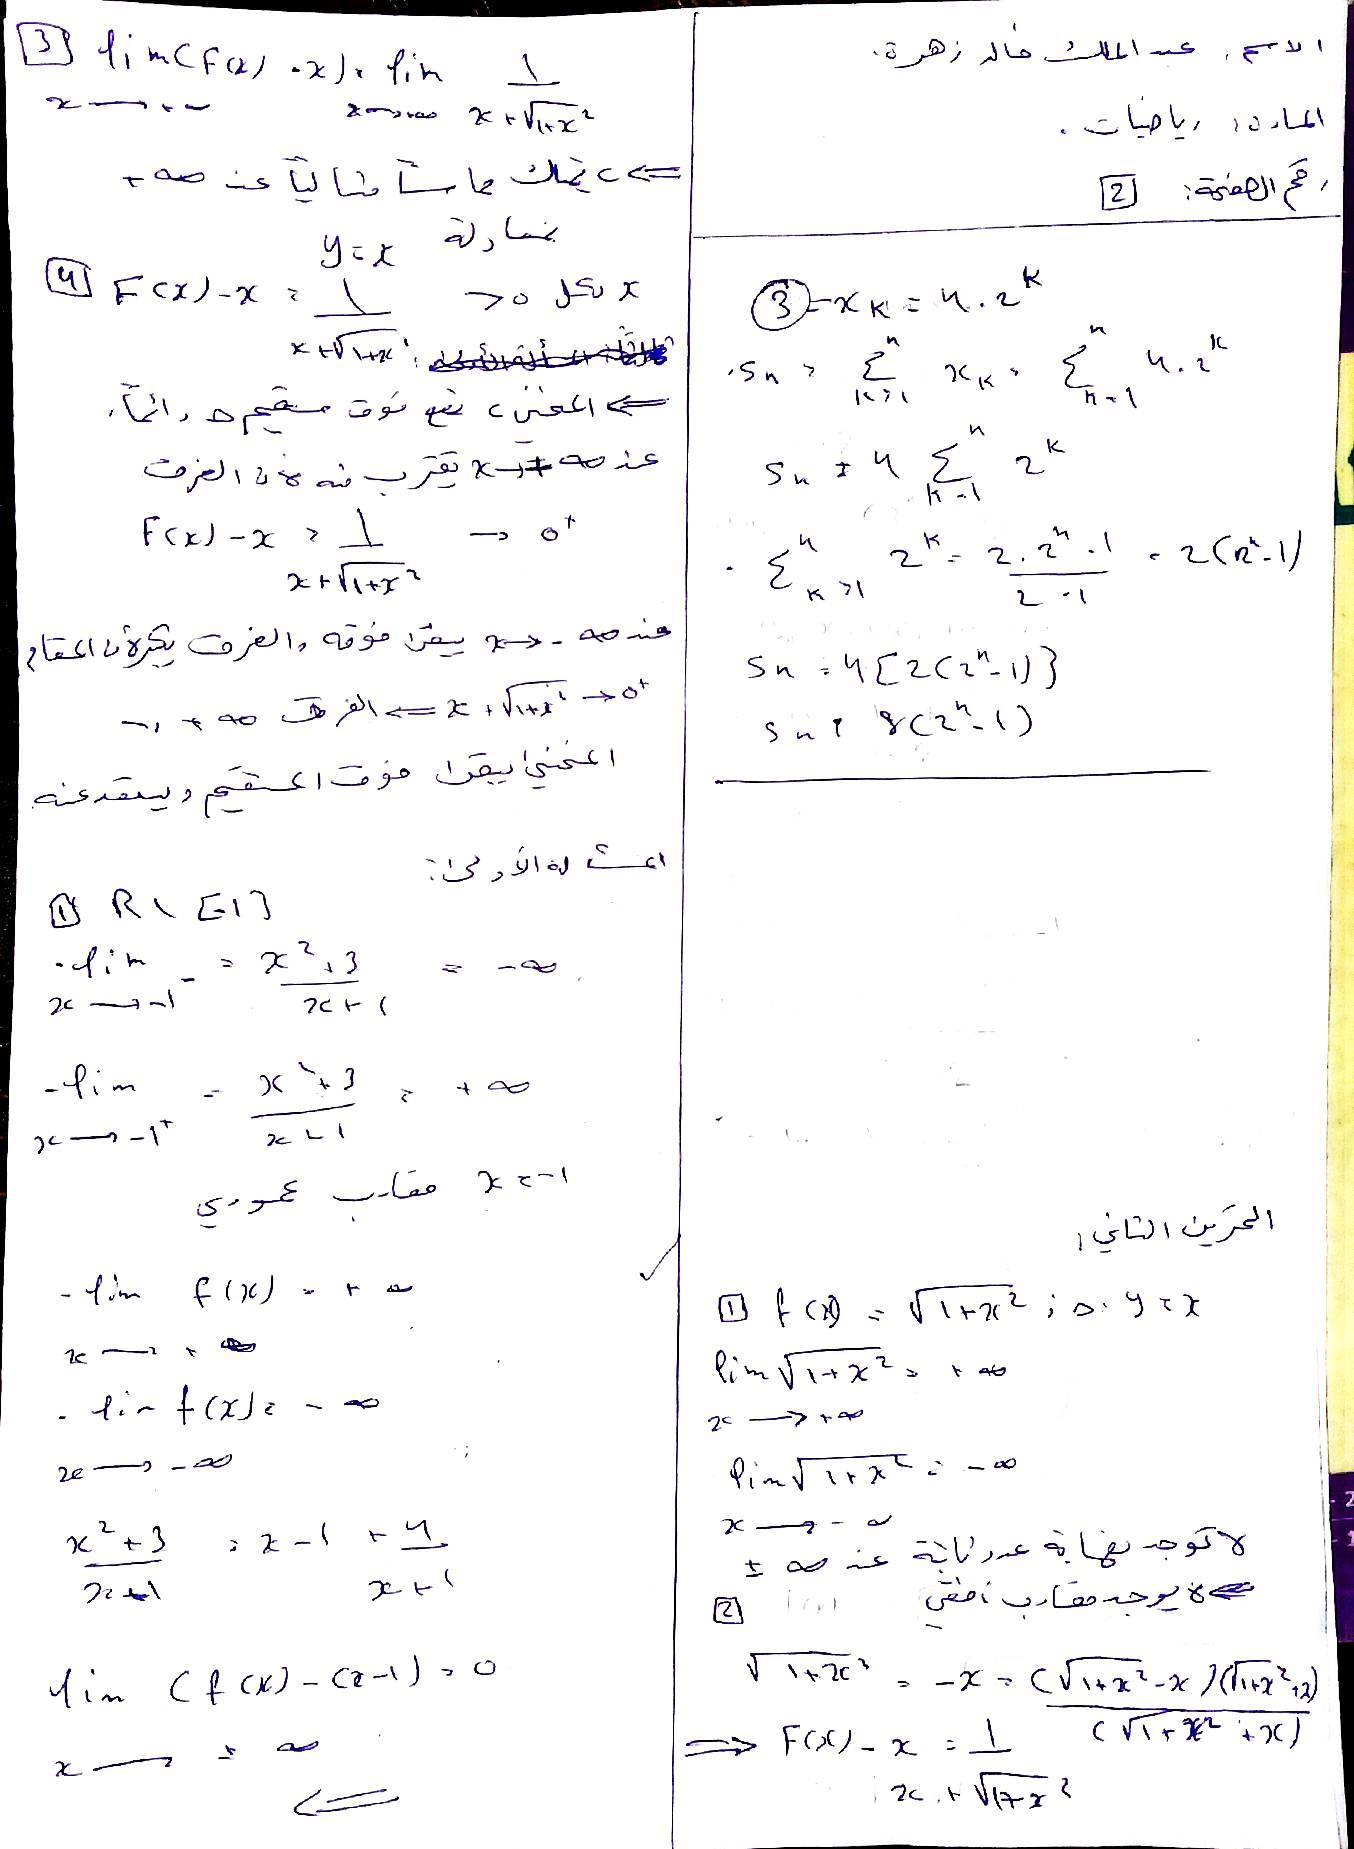 الاسم: عبد الملك خالد زهرة.
المادة: رياضيات.
رقم الصفحة: [2]
③ - x_K = 4 . 2^K
. Sn = Σ_{k=1}^{n} x_K = Σ_{n=1}^{n} 4 . 2^K
Sn = 4 Σ_{K=1}^{n} 2^K
. Σ_{K=1}^{n} 2^K = (2 . 2^n - 1)/(2 - 1) = 2(2^n - 1)
Sn = 4 [2(2^n - 1)]
Sn = 8(2^n - 1)
التمرين الثاني:
[1] f(x) = √(1+x²) ; Δ: y = x
lim √(1+x²) = +∞
x → +∞
lim √(1+x²) = -∞
x → -∞
لا توجد نهاية عدد ثابتة عند ∞ ±
⇐ لا يوجد مقارب أفقي
[2]
√(1+x²) = -x = (√(1+x²) - x)(√(1+x²) + x) / (√(1+x²) + x)
⇒ F(x) - x = 1/(x + √(1+x²))
[3] lim (F(x) - x) = lim 1/(x + √(1+x²))
x → +∞ x → +∞
⇐ C يملك مماساً مثالياً عند ∞ +
بمعادلة y = x
[4] F(x) - x = 1/(x + √(1+x²)) > 0 لكل x
⇐ المنحني C يقع فوق مستقيم Δ دائماً.
عند x → +∞ يقترب منه لأن الفرق
F(x) - x = 1/(x + √(1+x²)) → 0⁺
عند x → -∞ يبقى فوقه والفرق يكبر لأن المقام
x + √(1+x²) → 0⁺ ⇐ الفرق ∞ +
المنحني يبقى فوق المستقيم ويبتعد عنه
المسألة الأولى:
[1] R \ {-1}
. lim = (x²+3)/(x+1) = -∞
x → -1⁻
- lim = (x²+3)/(x+1) = +∞
x → -1⁺
x = -1 مقارب عمودي
- lim f(x) = +∞
x → +∞
. lim f(x) = -∞
x → -∞
(x²+3)/(x+1) = x - 1 + 4/(x+1)
lim (f(x) - (x-1)) = 0
x → ± ∞
⇐